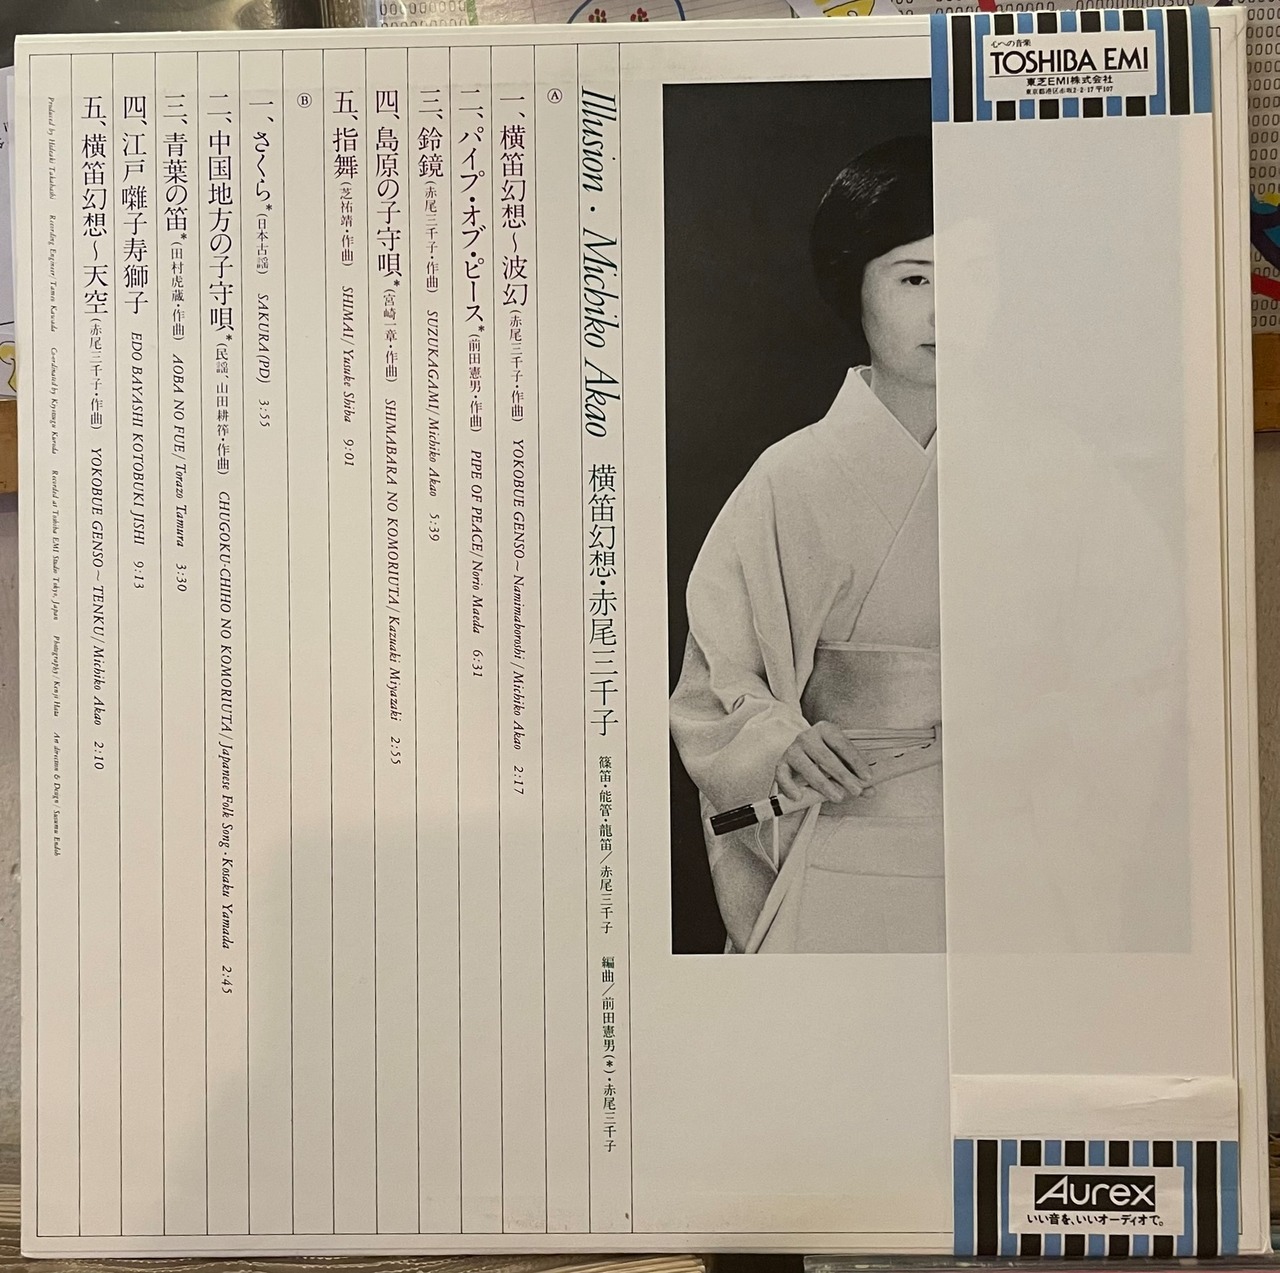 心への音楽
TOSHIBA EMI
東芝EMI株式会社
東京都港区赤坂2-2-17 〒107
Illusion・Michiko Akao 横笛幻想・赤尾三千子 篠笛・能管・龍笛／赤尾三千子 編曲／前田憲男(*)・赤尾三千子
Ⓐ
一、横笛幻想～波幻(赤尾三千子・作曲) YOKOBUE GENSO～Namimaboroshi / Michiko Akao 2:17
二、パイプ・オブ・ピース*(前田憲男・作曲) PIPE OF PEACE / Norio Maeda 6:31
三、鈴鏡(赤尾三千子・作曲) SUZUKAGAMI / Michiko Akao 5:39
四、島原の子守唄*(宮崎一章・作曲) SHIMABARA NO KOMORIUTA / Kazuaki Miyazaki 2:55
五、指舞(芝祐靖・作曲) SHIMAI / Yusuke Shiba 9:01
Ⓑ
一、さくら*(日本古謡) SAKURA (PD) 3:55
二、中国地方の子守唄*(民謡、山田耕筰・作曲) CHUGOKU-CHIHO NO KOMORIUTA / Japanese Folk Song・Kosaku Yamada 2:45
三、青葉の笛*(田村虎蔵・作曲) AOBA NO FUE / Torazo Tamura 3:30
四、江戸囃子寿獅子 EDO BAYASHI KOTOBUKI JISHI 9:13
五、横笛幻想～天空(赤尾三千子・作曲) YOKOBUE GENSO～TENKU / Michiko Akao 2:10
Produced by Hideaki Takahashi Recording Engineer / Tameo Kawada Coordinated by Kiyotsugu Kuroda Recorded at Toshiba EMI Studio Tokyo, Japan Photography / Kenji Hata Art direction & Design / Susumu Endoh
Aurex
いい音を、いいオーディオで。